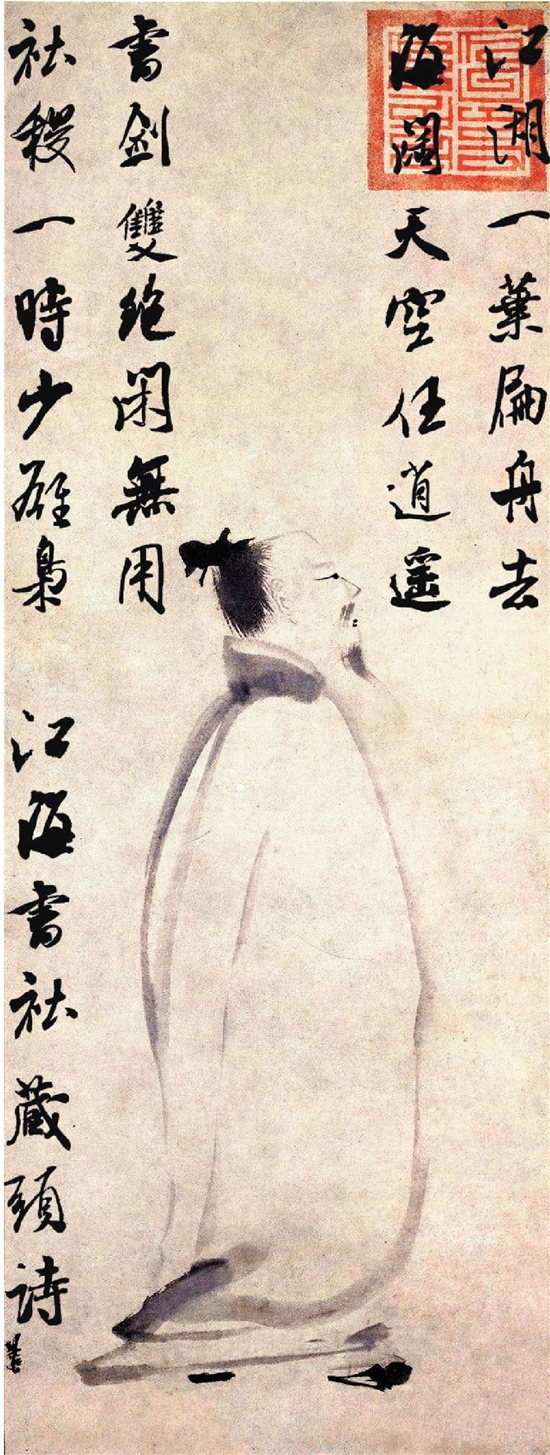 江湖一葉扁舟去
海闊天空任逍遥
書劍雙绝閑無用
社稷一時少雄梟
江海書社藏頭詩